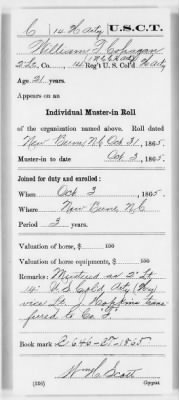 C | 14 H Arty | U.S.C.T.
William F
2' Lt, Co. , 14 Reg't U. S. Col'd H Arty
Age 21 years.
Appears on an
Individual Muster-in Roll
of the organization named above. Roll dated
New Berne N.C Oct 31, 1865.
Muster-in to date Oct 3, 1865.
Joined for duty and enrolled:
When Oct 3, 1865.
Where New Berne, N.C
Period 3 years.
Valuation of horse, $ 100
Valuation of horse equipments, $ 100
Remarks: Mustered as 2' Lt
14" U S Cold Arty (Hvy)
vice Lt. J. Hopkins trans
fered to Co
Book mark 2646-D-1865
Wm C Scott
(336) Copyist.